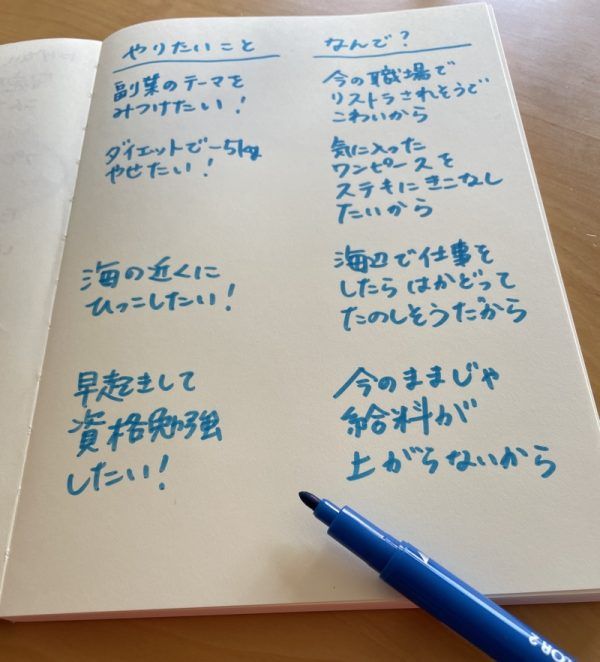 やりたいこと
なんで？
副業のテーマを
みつけたい！
今の職場で
リストラされそうで
こわいから
ダイエットで-5kg
やせたい！
気に入った
ワンピースを
ステキにきこなし
たいから
海の近くに
ひっこしたい！
海辺で仕事を
したらはかどって
たのしそうだから
早起きして
資格勉強
したい！
今のままじゃ
給料が
上がらないから